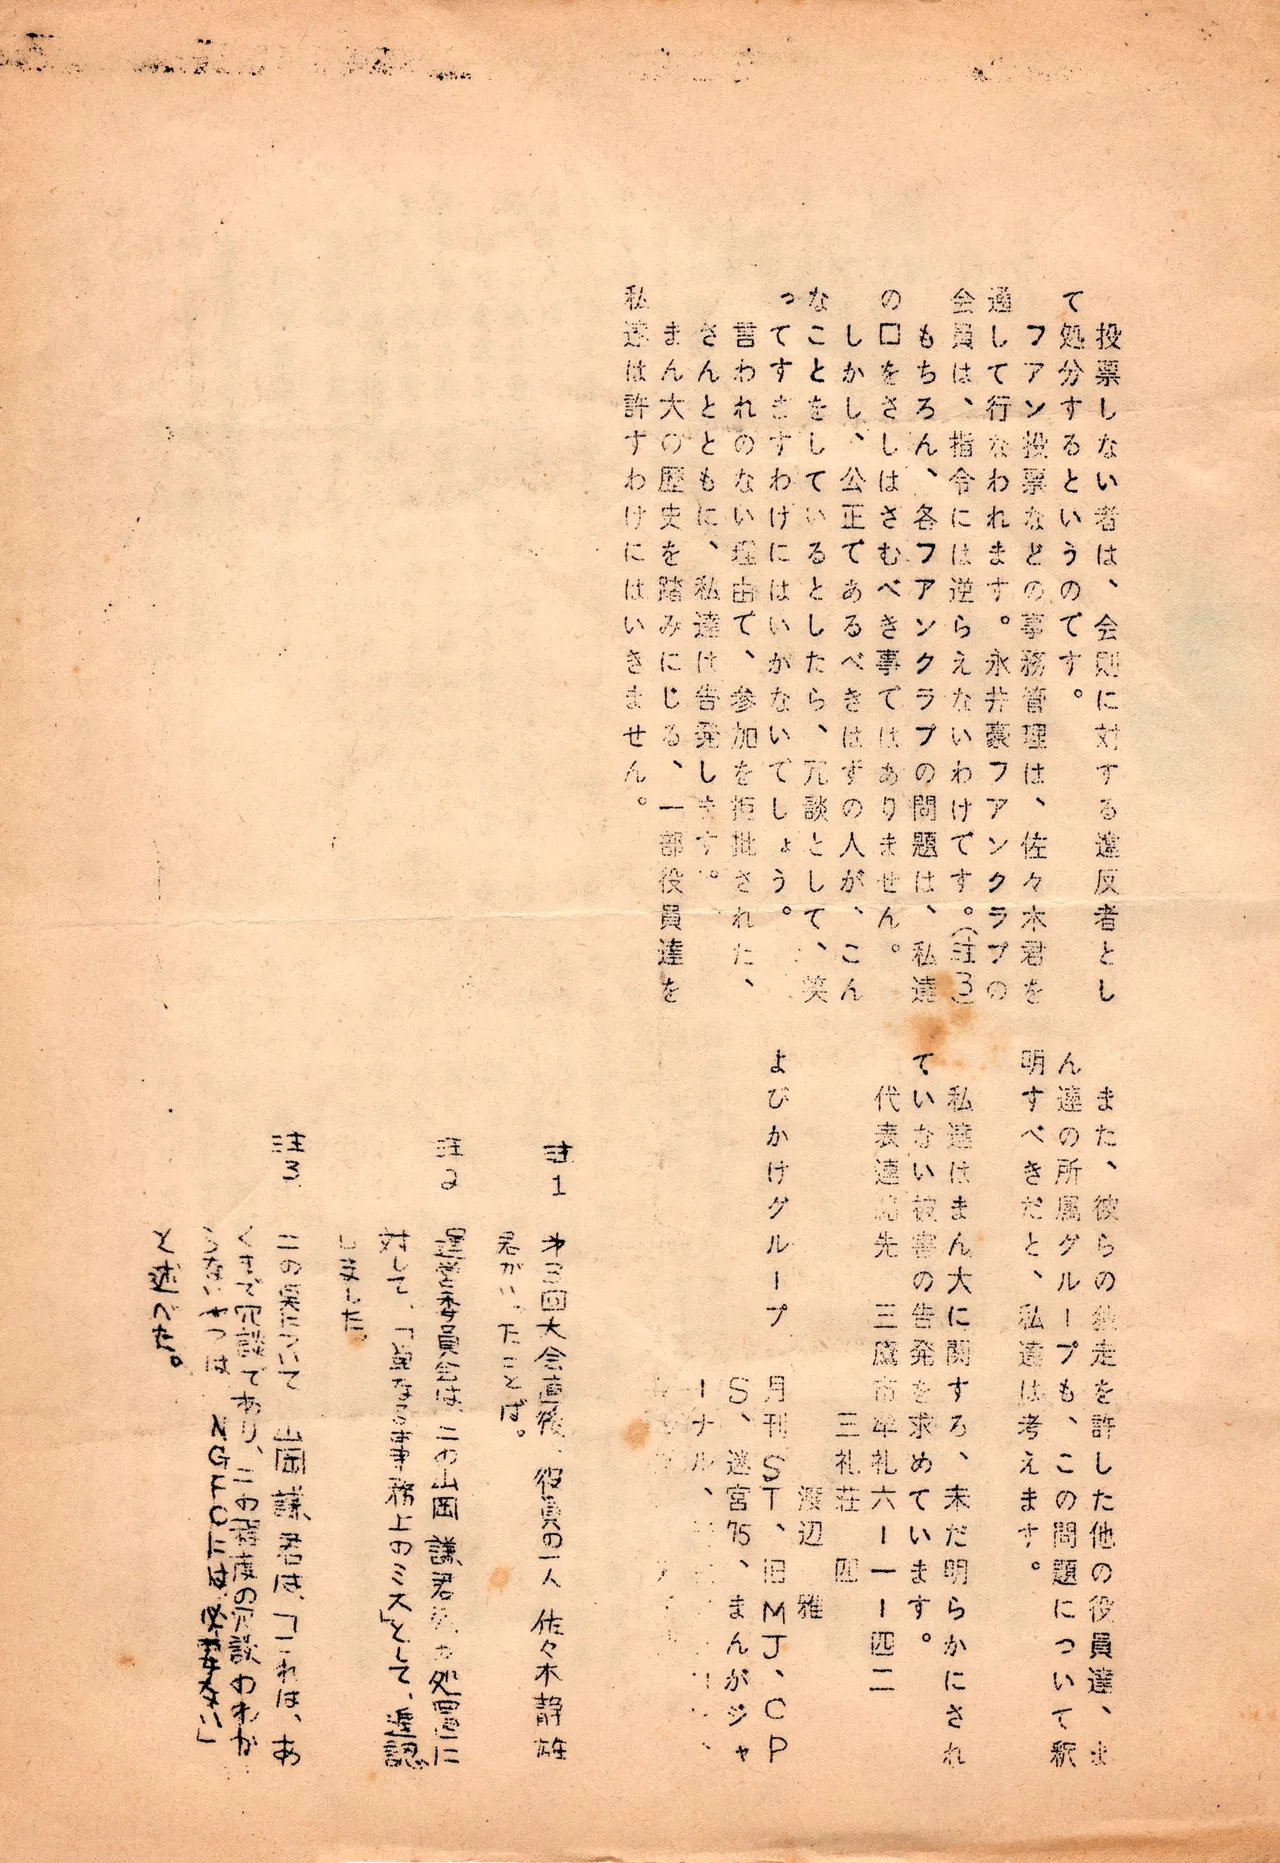 投票しない者は、会則に対する違反者とし
て処分するというのです。
ファン投票などの事務管理は、佐々木君を
通して行なわれます。永井豪ファンクラブの
会員は、指令には逆らえないわけです。(註3)
もちろん、各ファンクラブの問題は、私達
の口をさしはさむべき事ではありません。
しかし、公正であるべきはずの人が、こん
なことをしているとしたら、冗談として、笑
ってすますわけにはいかないでしょう。
言われのない理由で、参加を拒批された、
さんとともに、私達は告発します。
まん大の歴史を踏みにじる、一部役員達を
私達は許すわけにはいきません。
また、彼らの独走を許した他の役員達、ま
ん達の所属グループも、この問題について釈
明すべきだと、私達は考えます。
私達はまん大に関する、未だ明らかにされ
ていない被害の告発を求めています。
代表連絡先 三鷹市牟礼六ー一ー四二
三礼荘 四
渡辺 雅
よびかけグループ 月刊ST、旧MJ、CP
S、迷宮75、まんがジャ
ーナル、
註1 オ三回大会直後、役員の一人 佐々木静雄
君がいったことば。
註2 運営委員会は、この山岡 謙君の処置に
対して、「単なる事務上のミス」として、追認
しました。
註3 この点について 山岡 謙君は、「これは、あ
くまで冗談であり、この程度の冗談わわか
らないやつは NGFCには必要ない」
と述べた。